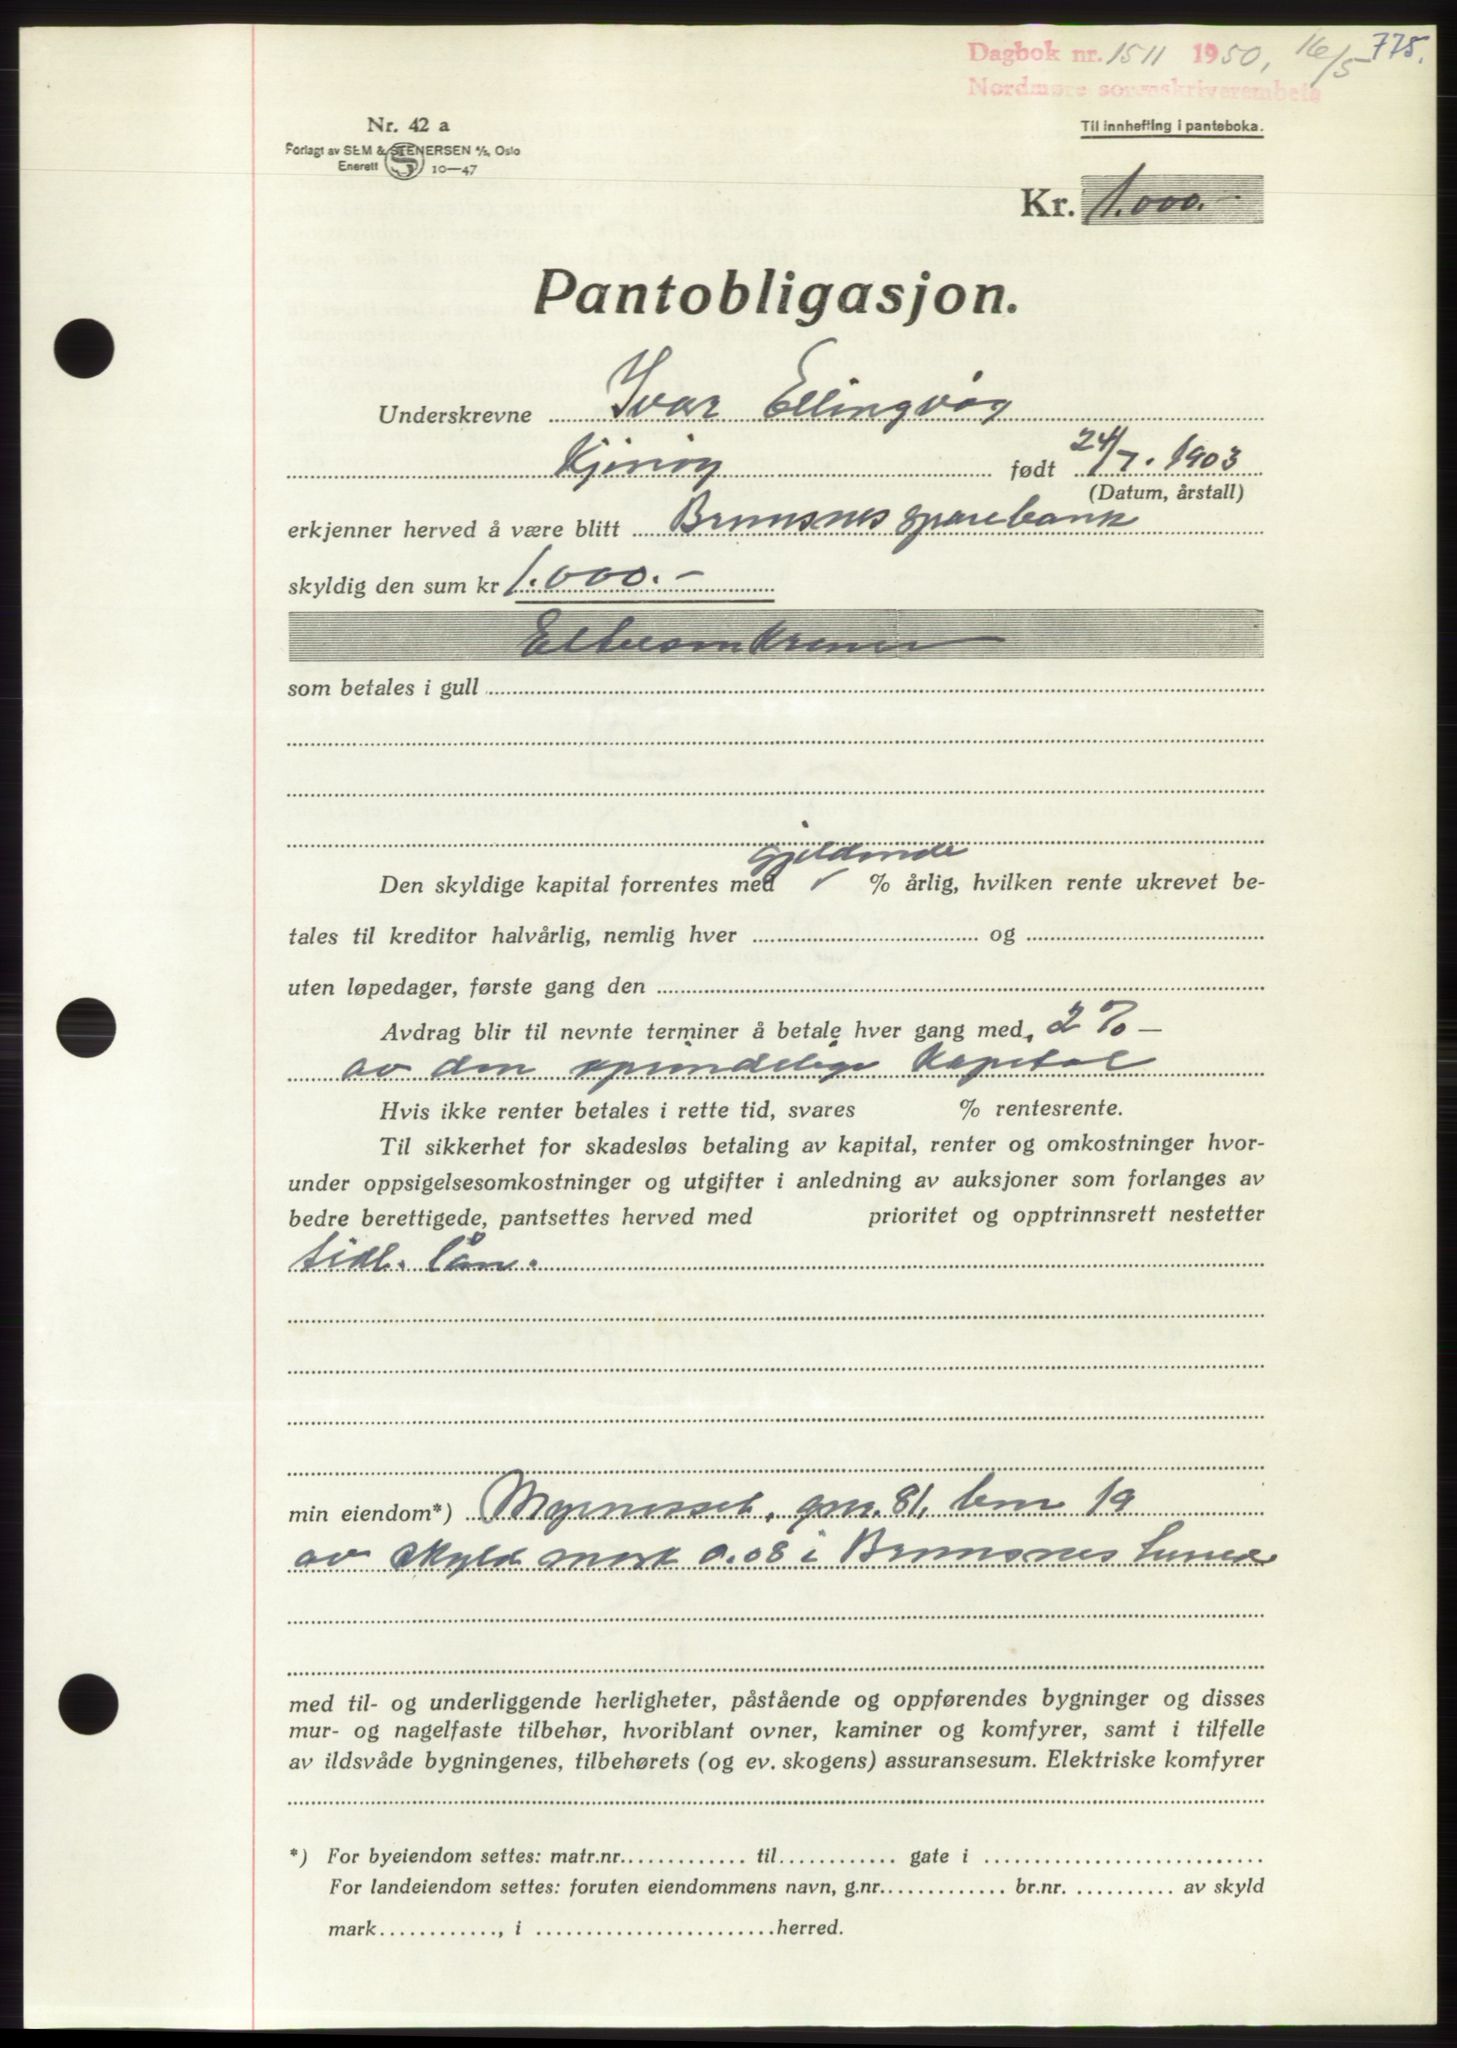 775.
Dagbok nr. 1511 1950, 16/5
Nordmøre sorenskriverembete
Nr. 42 a
Til innhefting i panteboka.
Forlagt av SEM & STENERSEN A/S, Oslo
Enerett 10—47
Kr. 1.000.-
Pantobligasjon.
Underskrevne Ivar Ellingvåg
født 24/7. 1903
(Datum, årstall)
erkjenner herved å være blitt Bremsnes sparebank
skyldig den sum kr 1.000.-
Ettusenkroner
som betales i gull
gjeldende
Den skyldige kapital forrentes med % årlig, hvilken rente ukrevet be-
tales til kreditor halvårlig, nemlig hver og
uten løpedager, første gang den
Avdrag blir til nevnte terminer å betale hver gang med, 2 % —
av den oprindelige kapital
Hvis ikke renter betales i rette tid, svares % rentesrente.
Til sikkerhet for skadesløs betaling av kapital, renter og omkostninger hvor-
under oppsigelsesomkostninger og utgifter i anledning av auksjoner som forlanges av
bedre berettigede, pantsettes herved med prioritet og opptrinnsrett nestetter
tidl. lån.
min eiendom*) gnr. 81, bnr 19
av skyld mark 0.08 i Bremsnes herred
med til- og underliggende herligheter, påstående og oppførendes bygninger og disses
mur- og nagelfaste tilbehør, hvoriblant ovner, kaminer og komfyrer, samt i tilfelle
av ildsvåde bygningenes, tilbehørets (og ev. skogens) assuransesum. Elektriske komfyrer
*) For byeiendom settes: matr.nr. til gate i
For landeiendom settes: foruten eiendommens navn, g.nr. br.nr. av skyld
mark , i herred.